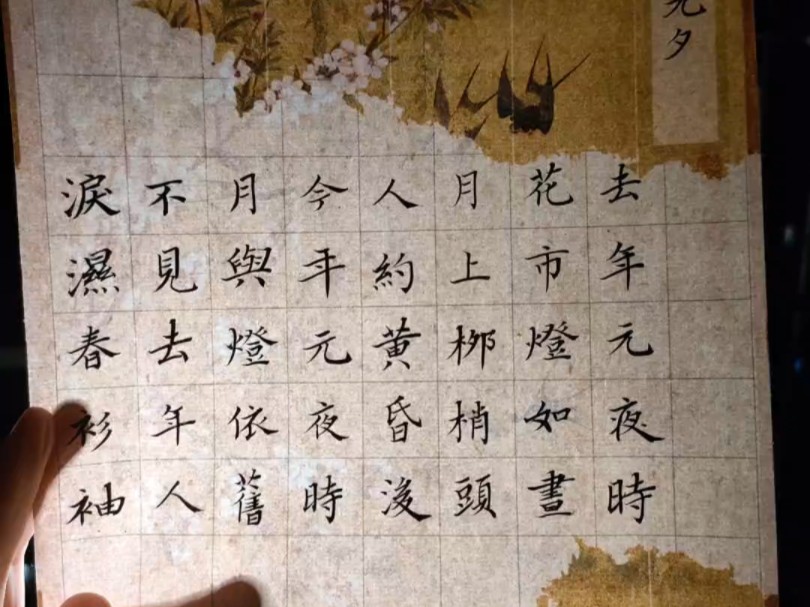 元夕
去年元夜時
花市燈如晝
月上栁梢頭
人約黄昏後
今年元夜時
月與燈依舊
不見去年人
淚濕春衫袖